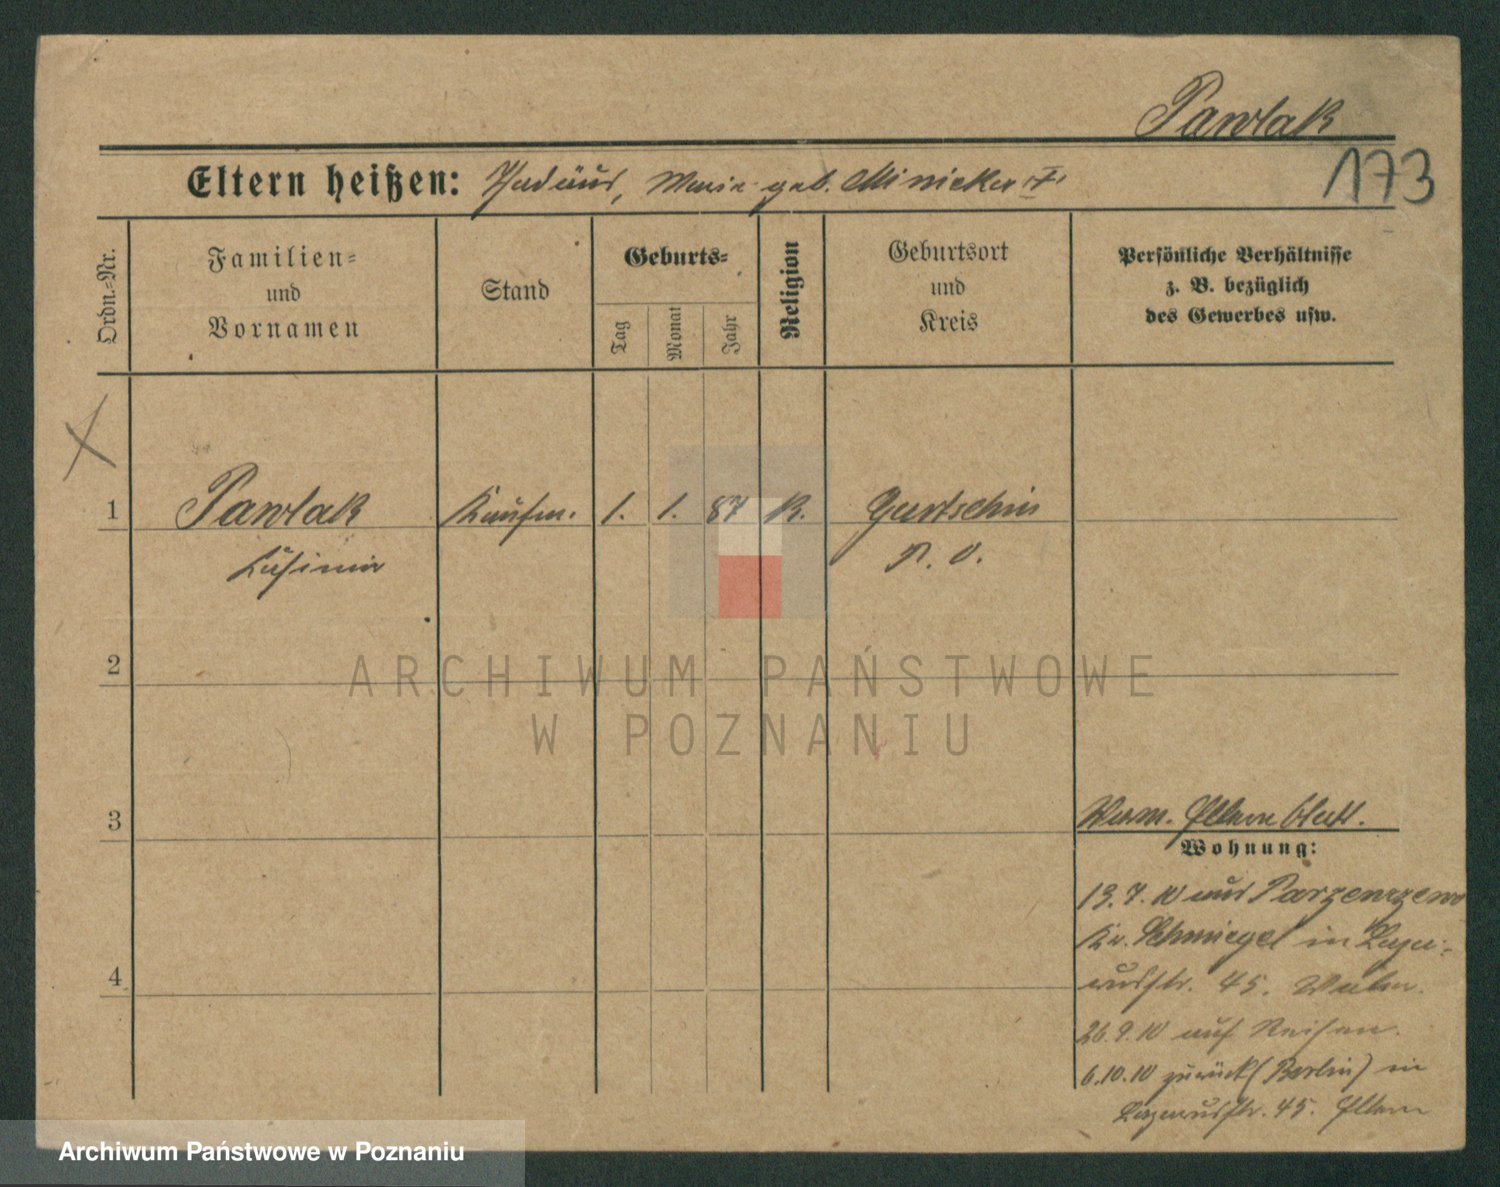 Pawlak
173
Eltern heißen: Maria geb.
Ordn.-Nr.
Familien=
und
Vornamen
Stand
Geburts=
Tag
Monat
Jahr
Religion
Geburtsort
und
Kreis
Persönliche Verhältnisse
z. B. bezüglich
des Gewerbes usw.
1 Pawlak Kaufm. 1. 1. 87 K. Gurtschin
Kasimir P. O.
2
ARCHIWUM PAŃSTWOWE
W POZNANIU
3
Elternblatt.
Wohnung:
13.7.10 aus
Kr. Schmiegel in Laza=
russtr. 45.
26.9.10 auf Reisen.
6.10.10 zurück (Berlin) in
Lazarusstr. 45. Eltern
4
Archiwum Państwowe w Poznaniu